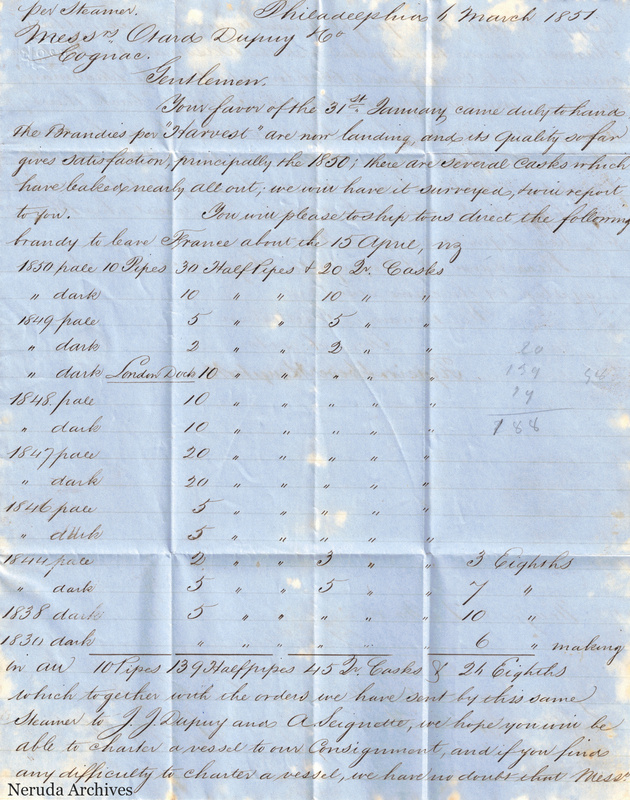 per Steamer. Philadelphia 4 March 1851
Messrs Otard Dupuy & Co
Cognac.
Gentlemen.
Your favor of the 31st January came duly to hand
The Brandies per "Harvest" are now landing, and its quality so far
gives satisfaction, principally the 1850; there are several Casks which
have leaked nearly all out; we will have it surveyed, & will report
to you. You will please to ship to us direct the following
brandy to leave France about the 15 April, viz
1850 pale 10 Pipes 30 Half Pipes & 20 Qr. Casks
" dark 10 " " 10 " "
1849 pale 5 " " 5 " "
" dark 2 " " 2 " "
" dark London Dock 10 " " " " "
1848 pale 10 " " " " "
" dark 10 " " " " "
1847 pale 20 " " " " "
" dark 20 " " " " "
1846 pale 5 " " " " "
" dark 5 " " " " "
1844 pale 2 " " 3 " " 3 Eighths
" dark 5 " " 5 " " 7 "
1838 dark 5 " " " " " 10 "
dark " " " " " 6 " making
in all 10 Pipes 139 Half pipes 45 Qr. Casks & 26 Eighths
which together with the orders we have sent by this same
Steamer to J. J. Dupuy and A Seignette, we hope you will be
able to charter a vessel to our Consignment, and if you find
any difficulty to charter a vessel, we have no doubt that Messrs
20
159
19
188
Neruda Archives